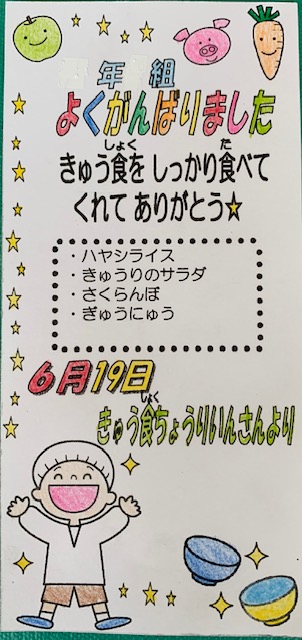 年 組
よくがんばりました
きゅう食を しっかり食べて
くれて ありがとう★
・ハヤシライス
・きゅうりのサラダ
・さくらんぼ
・ぎゅうにゅう
6月19日
きゅう食ちょうりいんさんより